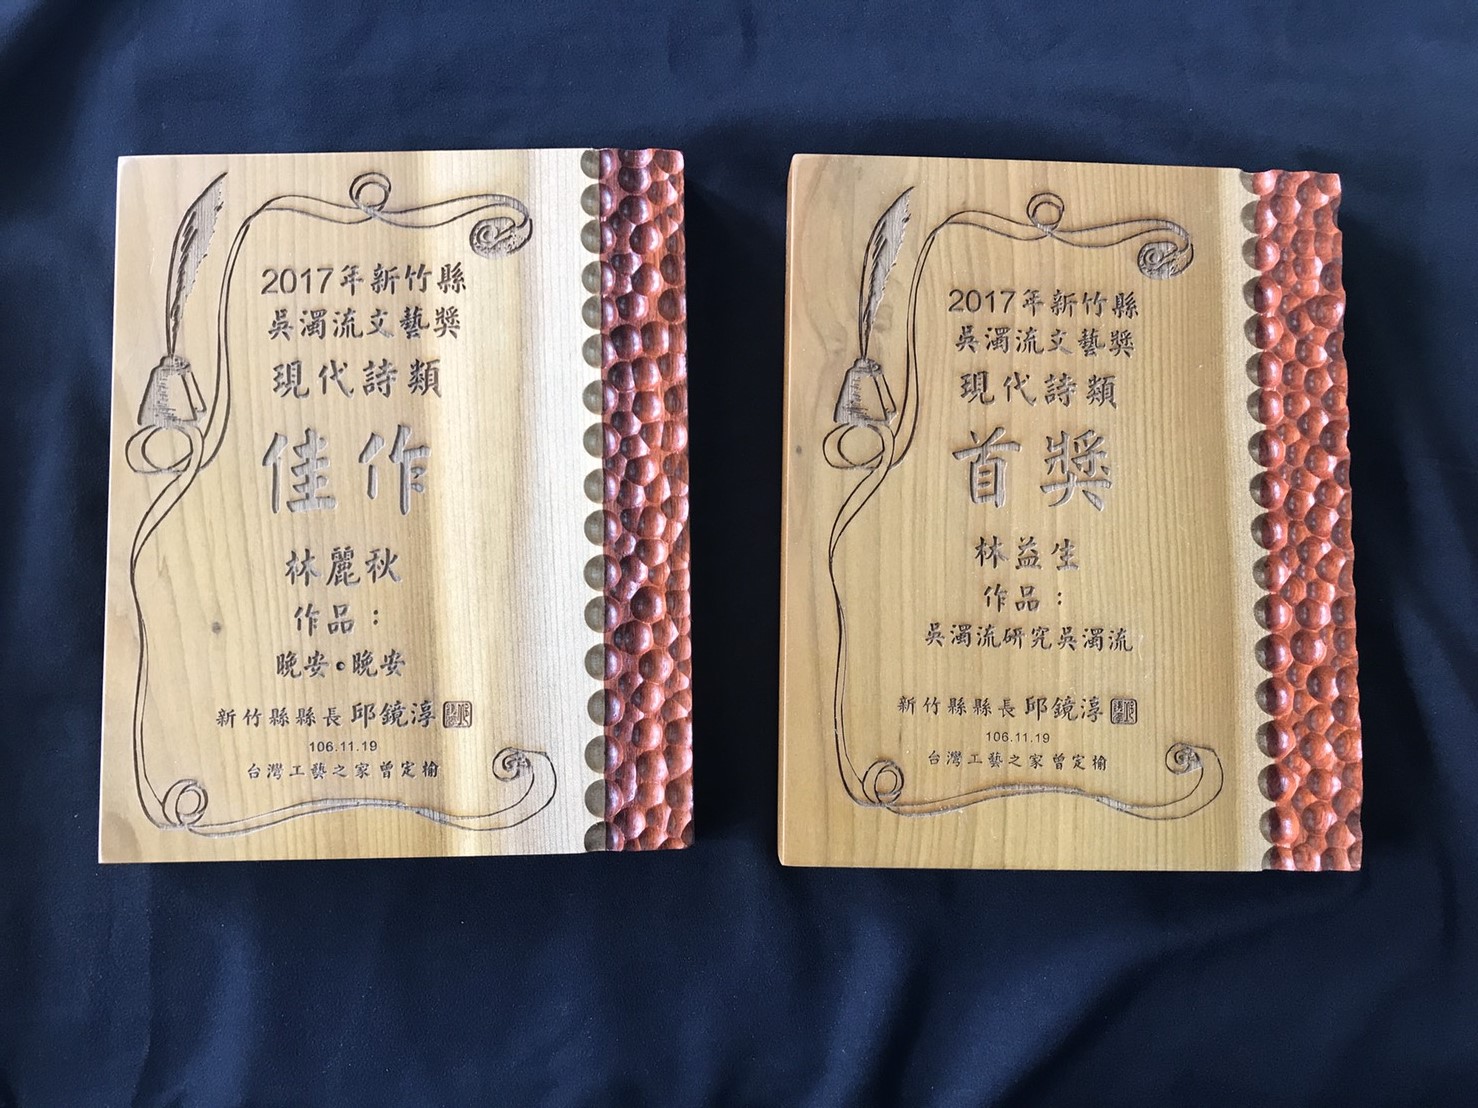 2017年新竹縣
吳濁流文藝獎
現代詩類
佳作
林麗秋
作品：
晚安•晚安
新竹縣縣長邱鏡淳
106.11.19
台灣工藝之家曾定榆
2017年新竹縣
吳濁流文藝獎
現代詩類
首獎
林益生
作品：
吳濁流研究吳濁流
新竹縣縣長邱鏡淳
106.11.19
台灣工藝之家曾定榆